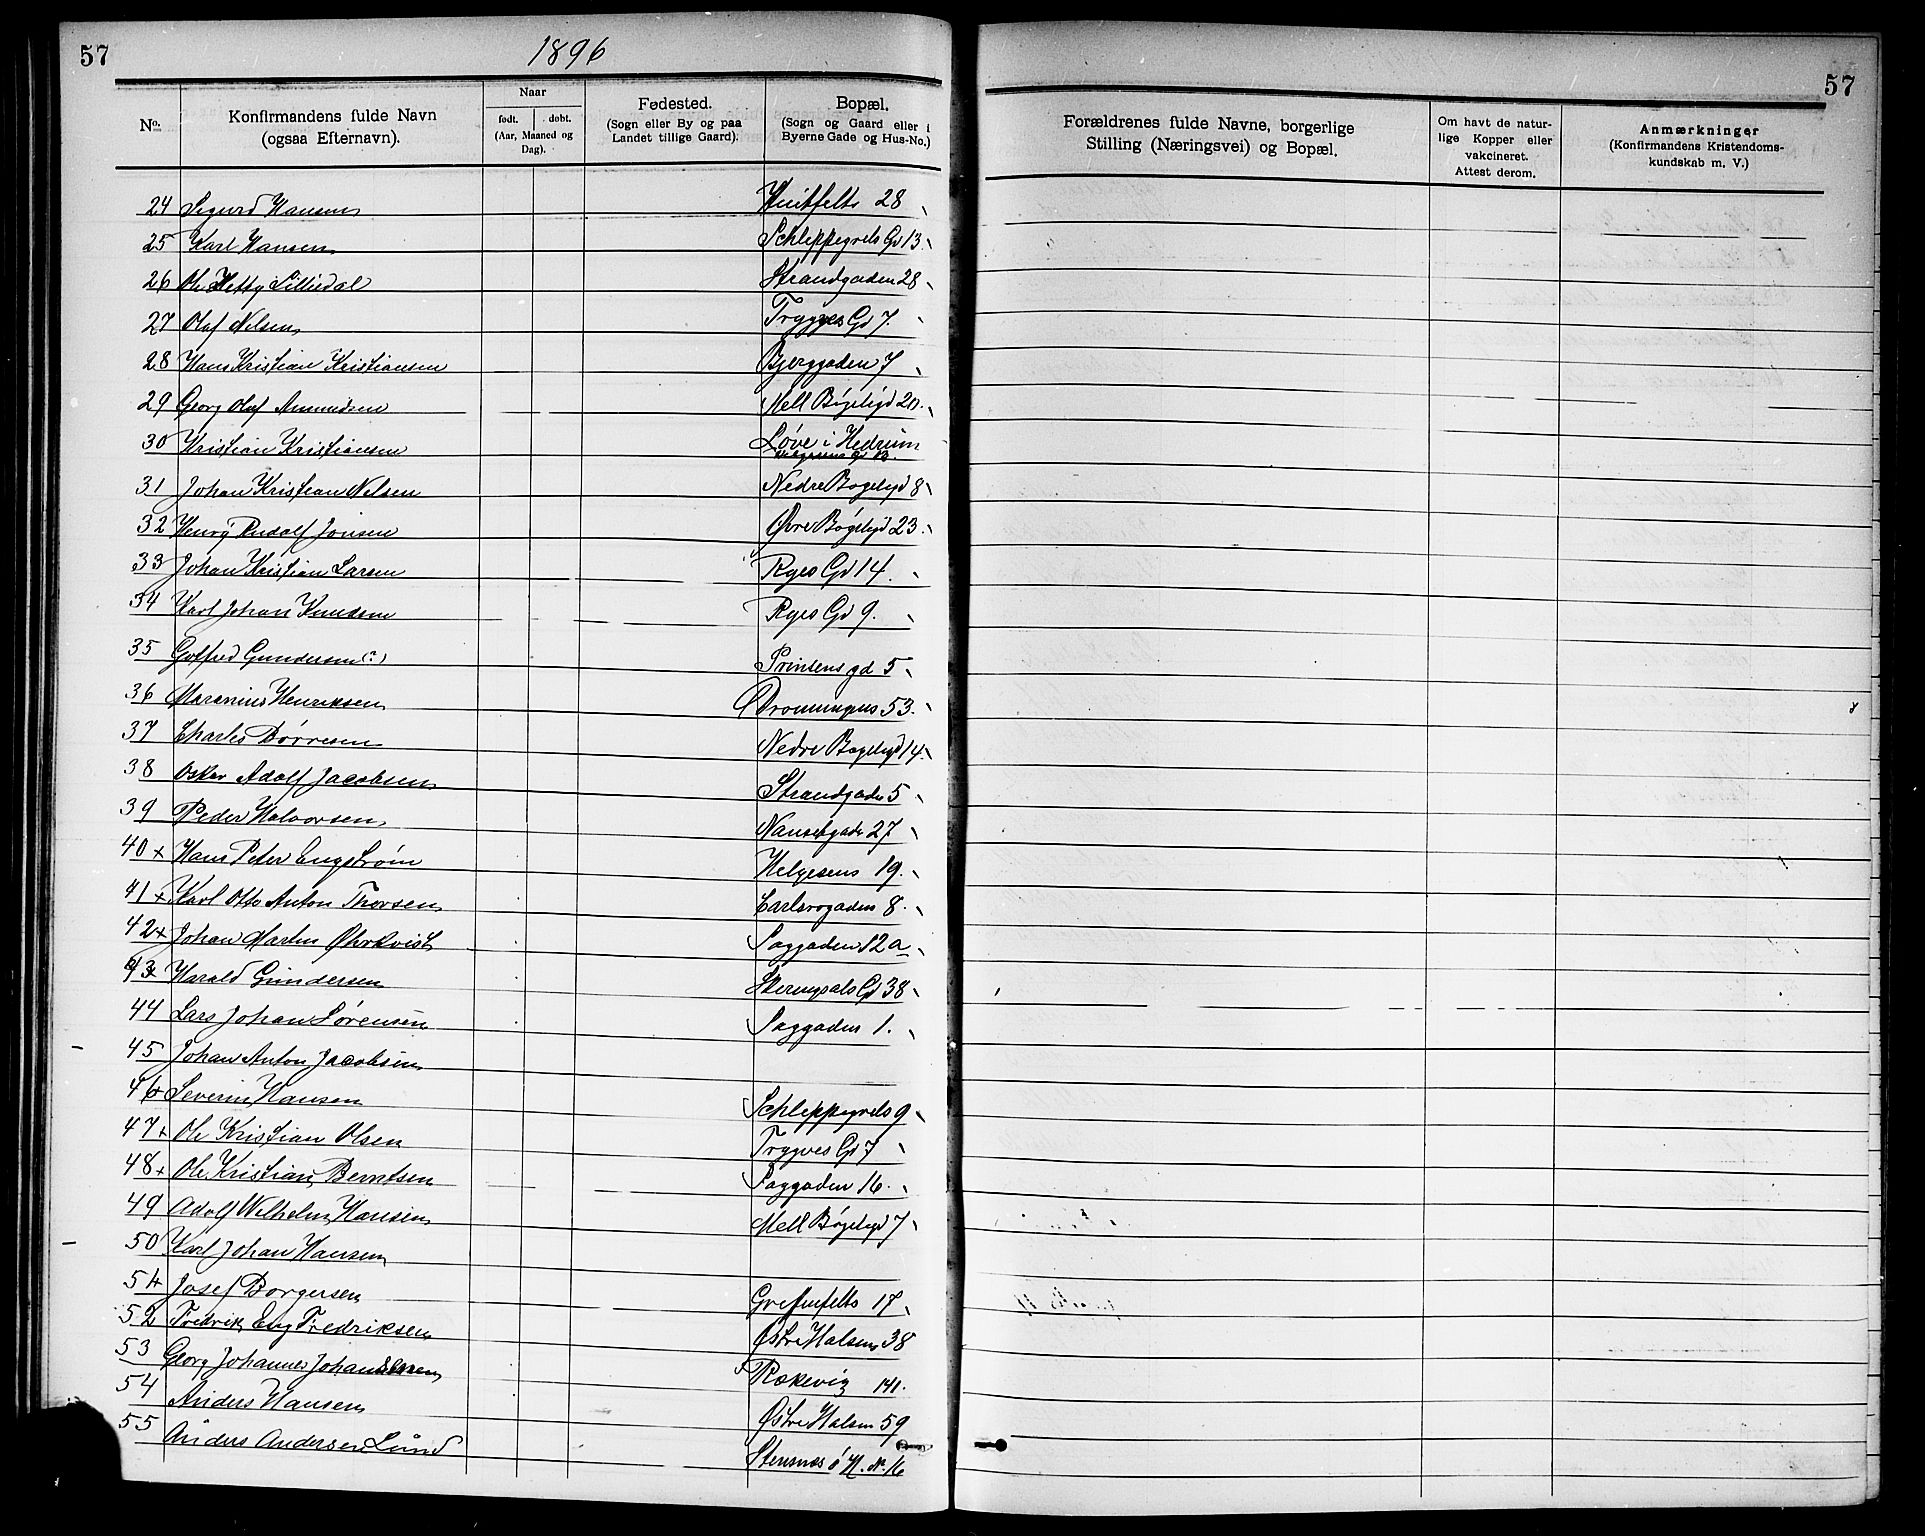 57
1896
No.
Konfirmandens fulde Navn
(ogsaa Efternavn).
Naar
født. døbt.
(Aar, Maaned og
Dag).
Fødested.
(Sogn eller By og paa
Landet tillige Gaard).
Bopæl.
(Sogn og Gaard eller i
Byerne Gade og Hus-No.)
24 Sigurd Hansen Huitfelts 28
25 Karl Hansen Schleppegrels Gd 13.
26 Ole Lilliedal Strandgaden 28
27 Olaf Nilsen Trygves Gd 7.
28 Hans Kristian Kristiansen Bjerggaden 7
29 Georg Olaf Amundsen Mell Bøgeligd 20.
30 Kristian Kristiansen Løve i Hedrum
31 Johan Kristian Nilsen Nedre Bøgeligd 8
32 Henry Rudolf Jonsen Øvre Bøgeligd 23.
33 Johan Kristian Larsen Ryes Gd 14.
34 Karl Johan Knudsen Ryes Gd 9.
35 Gotfred Gundersen (?) Prinsens gd 5
36 Maranius Henriksen Dronningens 53.
37 Charles Børresen Nedre Bøgeligd 14.
38 Oskar Adolf Jacobsen Strandgaden 5
39 Peder Halvorsen Nansetgade 27
40 x Hans Peter Engstrøm Helgesens 19.
41 x Karl Otto Anton Thorsen Carlsrogaden 8.
42 x Johan Martin Øhrkvist Saggaden 12 a
43 x Harald Gundersen Skeringsals Gd 38
44 Lars Johan Sørensen Saggaden 1.
45 Johan Anton Jacobsen
46 Severin Hansen Schleppegrels 9
47 x Ole Kristian Olsen Trygves Gd 7
48 x Ole Kristian Berntsen Saggaden 16.
49 Adolf Wilhelm Hansen Mell Bøgeligd 7
50 Karl Johan Hansen
51 Josef Borgersen Griffenfelts 17
52 Fredrik Eng Fredriksen Østre Halsen 38
53 Georg Johannes Johannesen Rækevig 141.
54 Anders Hansen Østre Halsen 59
55 Anders Andersen Lund Stensnæs Ø H. No. 16
57
Forældrenes fulde Navne, borgerlige
Stilling (Næringsvei) og Bopæl.
Om havt de natur-
lige Kopper eller
vakcineret.
Attest derom.
Anmærkninger
(Konfirmandens Kristendoms-
kundskab m. V.)